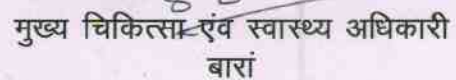 मुख्य चिकित्सा एंव स्वास्थ्य अधिकारी
बारां